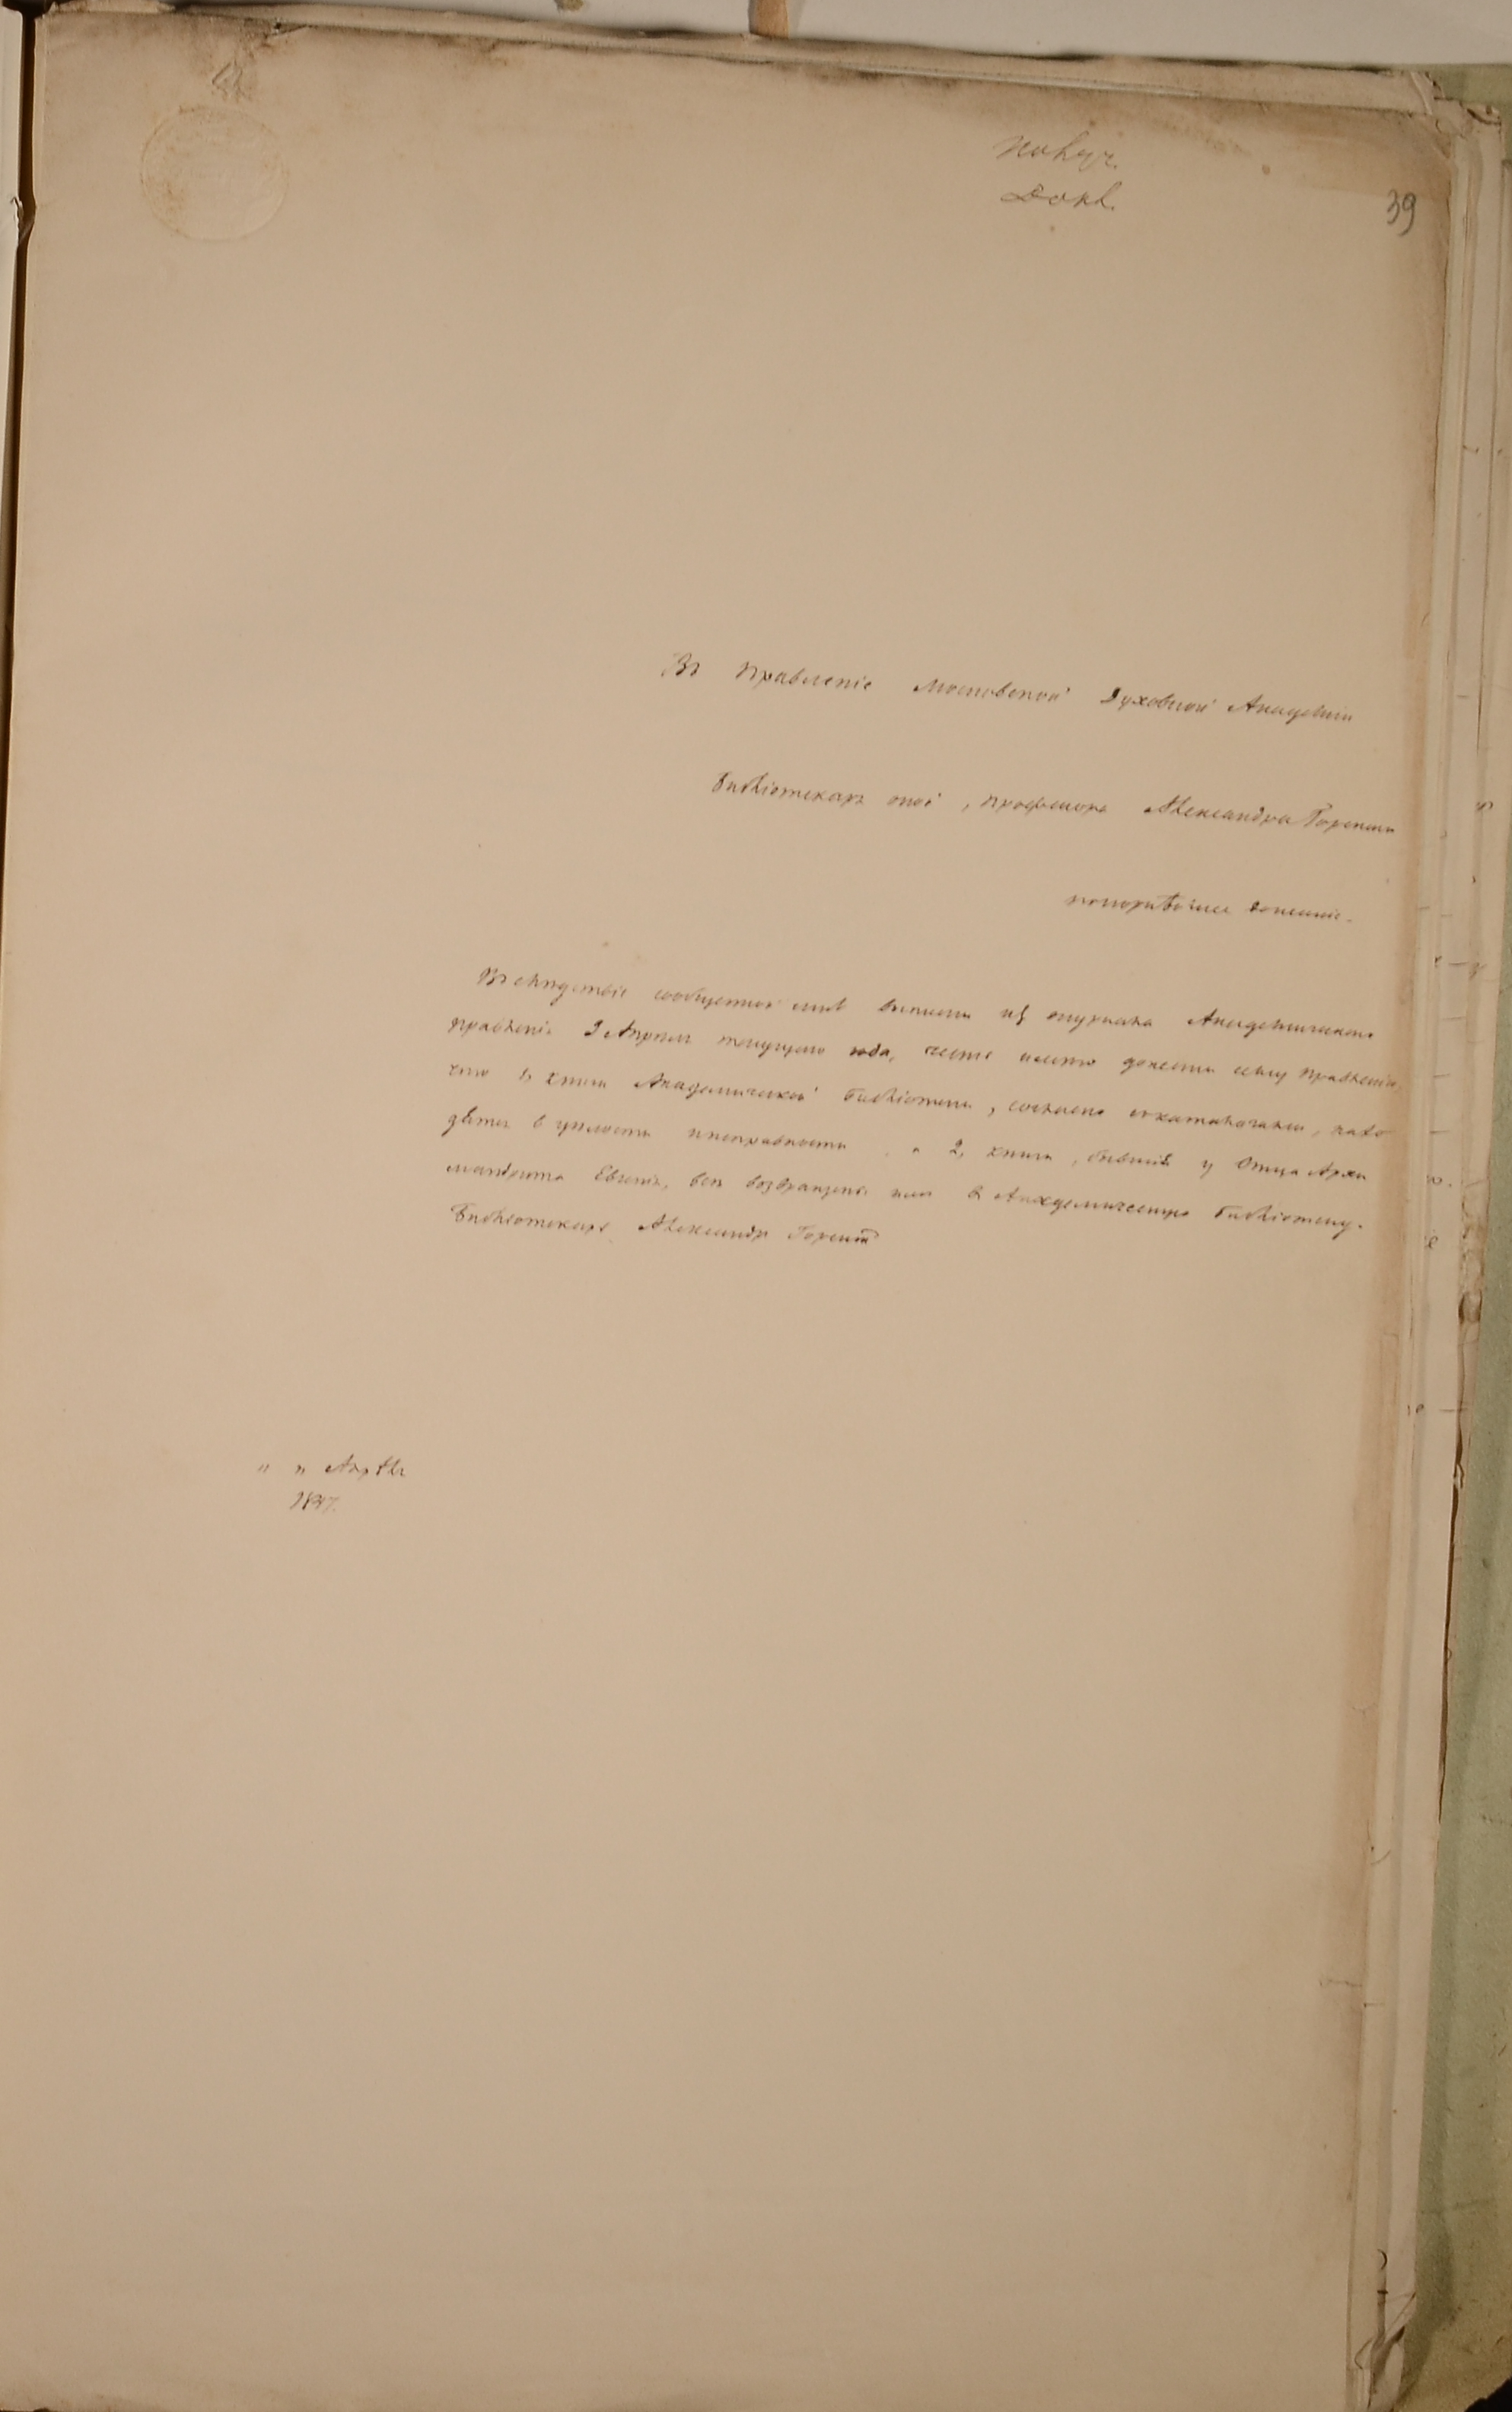 Получ.
Докл.
39
Въ Правленіе Московской Духовной Академіи
Библіотекаря оной, профессора Александра Горскаго
покорнѣйшее донесеніе.
Въ слѣдствіе сообщенной мнѣ выписки изъ журнала Академическаго
Правленія 2 Апрѣля текущаго года, честь имѣю донести сему Правленію,
что 1, книги Академической библіотеки, согласно съ каталогами, нахо
дятся въ цѣлости и исправности и 2, книги, бывшія у Отца Архи
мандрита Евгенія, всѣ возвращены имъ въ Академическую библіотеку.
Библіотекарь Александръ Горскій
" " Апрѣля
1847.